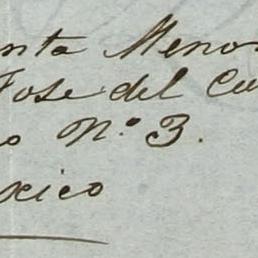 nta Meno
Jose del Cu
o N.º 3.
xico